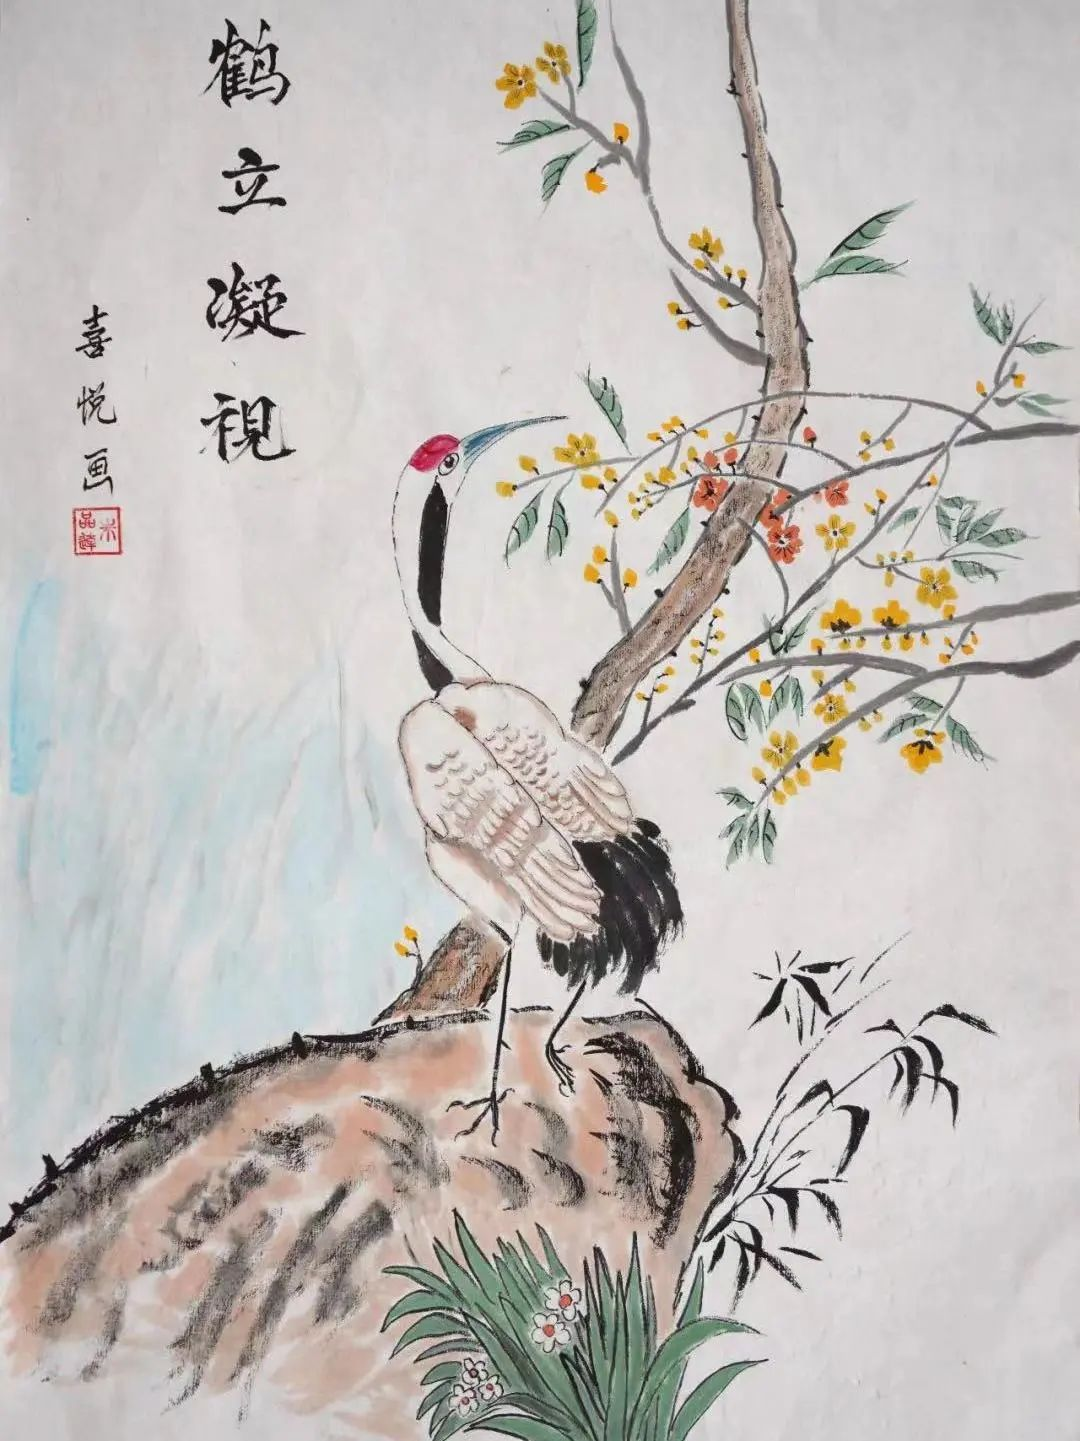 鹤立凝視
喜悦画